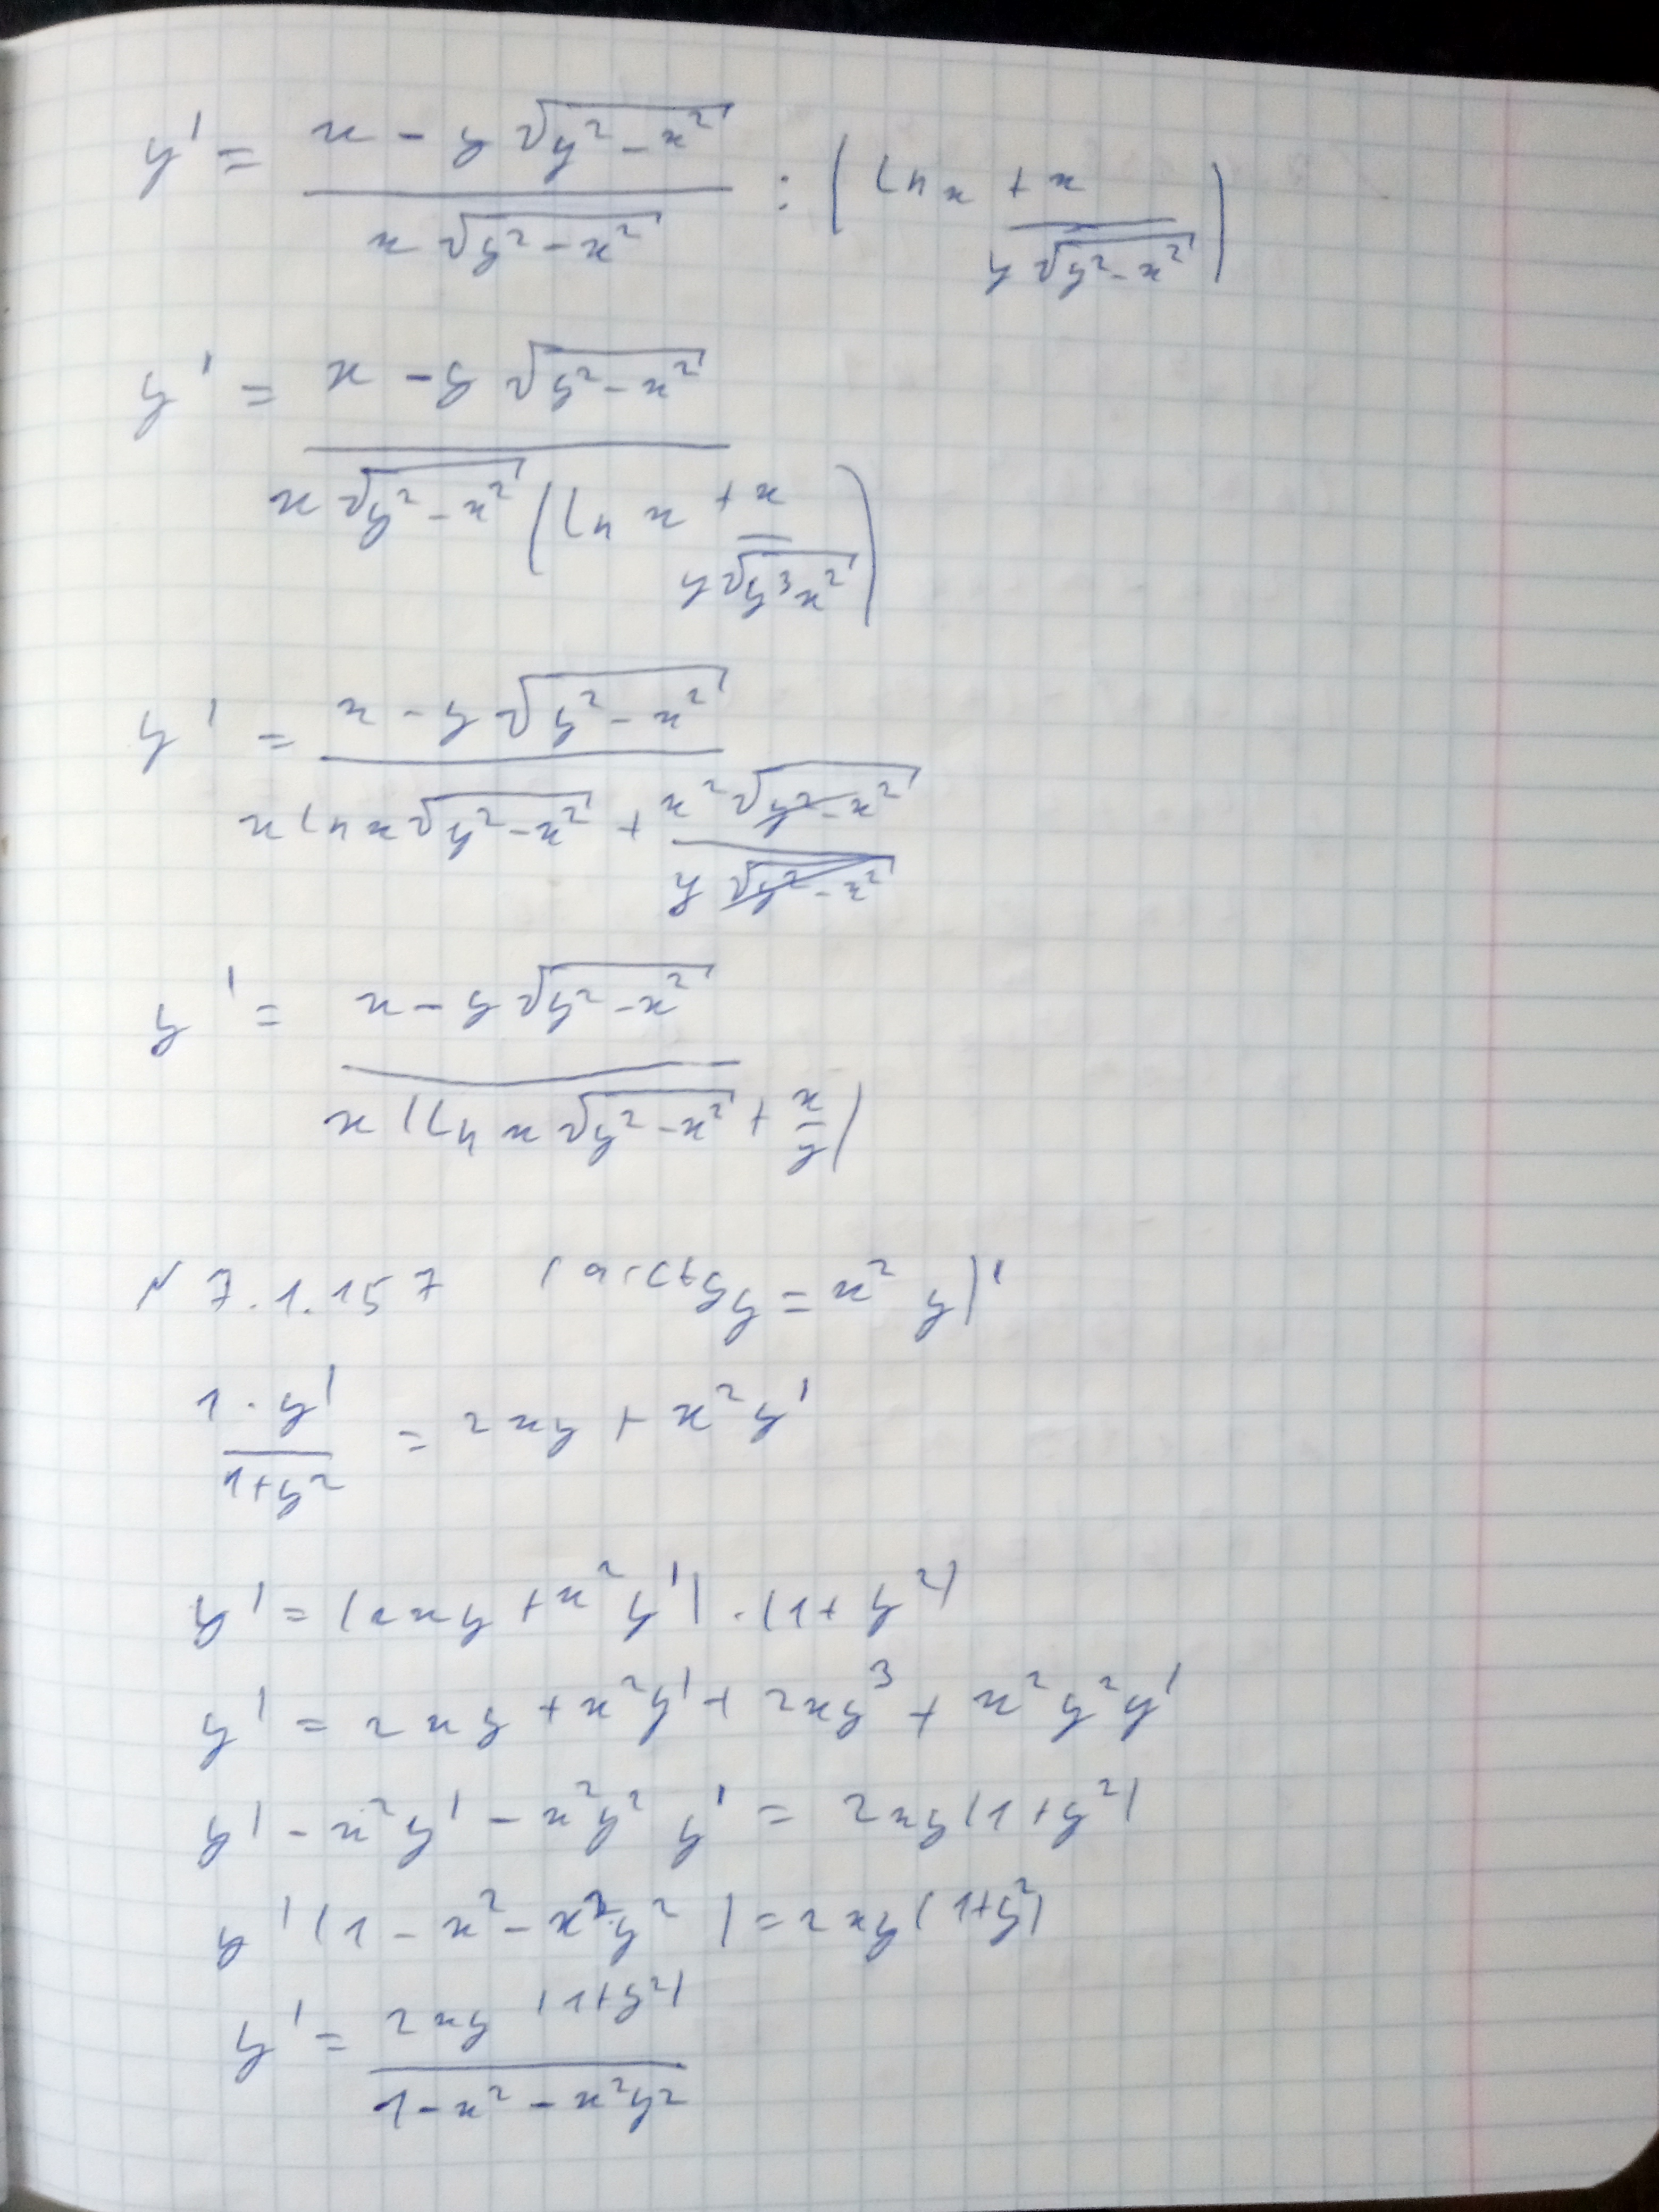 y' = \frac{x - y\sqrt{y^2 - x^2}}{x\sqrt{y^2 - x^2}} : \left( \ln x + \frac{x}{y\sqrt{y^2 - x^2}} \right)
y' = \frac{x - y\sqrt{y^2 - x^2}}{x\sqrt{y^2 - x^2} \left( \ln x + \frac{x}{y\sqrt{y^3 x^2}} \right)}
y' = \frac{x - y\sqrt{y^2 - x^2}}{x \ln x \sqrt{y^2 - x^2} + \frac{x^2 \sqrt{y^2 - x^2}}{y\sqrt{y^2 - x^2}}}
y' = \frac{x - y\sqrt{y^2 - x^2}}{x (\ln x \sqrt{y^2 - x^2} + \frac{x}{y})}
N 7.1.157 (arctg y = x^2 y)'
\frac{1 \cdot y'}{1 + y^2} = 2xy + x^2 y'
y' = (2xy + x^2 y') \cdot (1 + y^2)
y' = 2xy + x^2 y' + 2xy^3 + x^2 y^2 y'
y' - x^2 y' - x^2 y^2 y' = 2xy(1 + y^2)
y'(1 - x^2 - x^2 y^2) = 2xy(1 + y^2)
y' = \frac{2xy (1 + y^2)}{1 - x^2 - x^2 y^2}